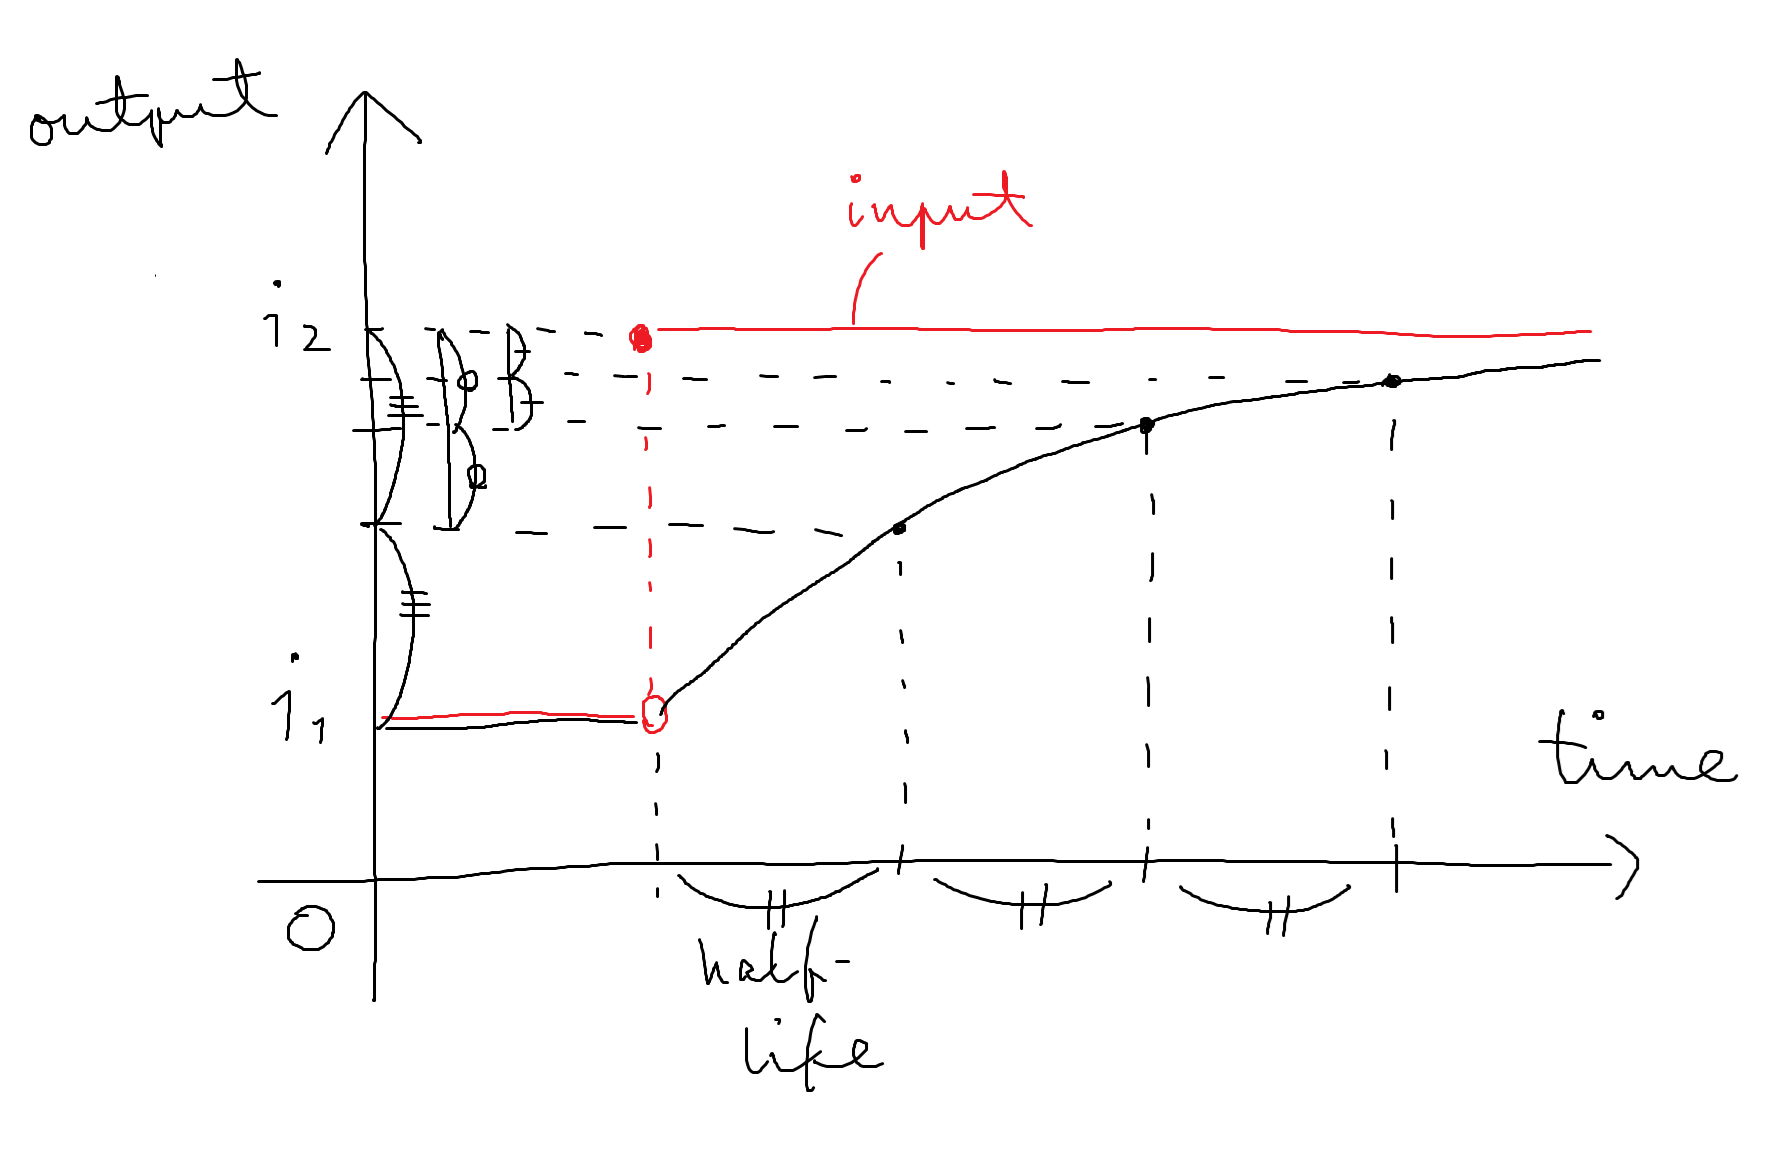 output
input
i2
i1
time
0
half-
life